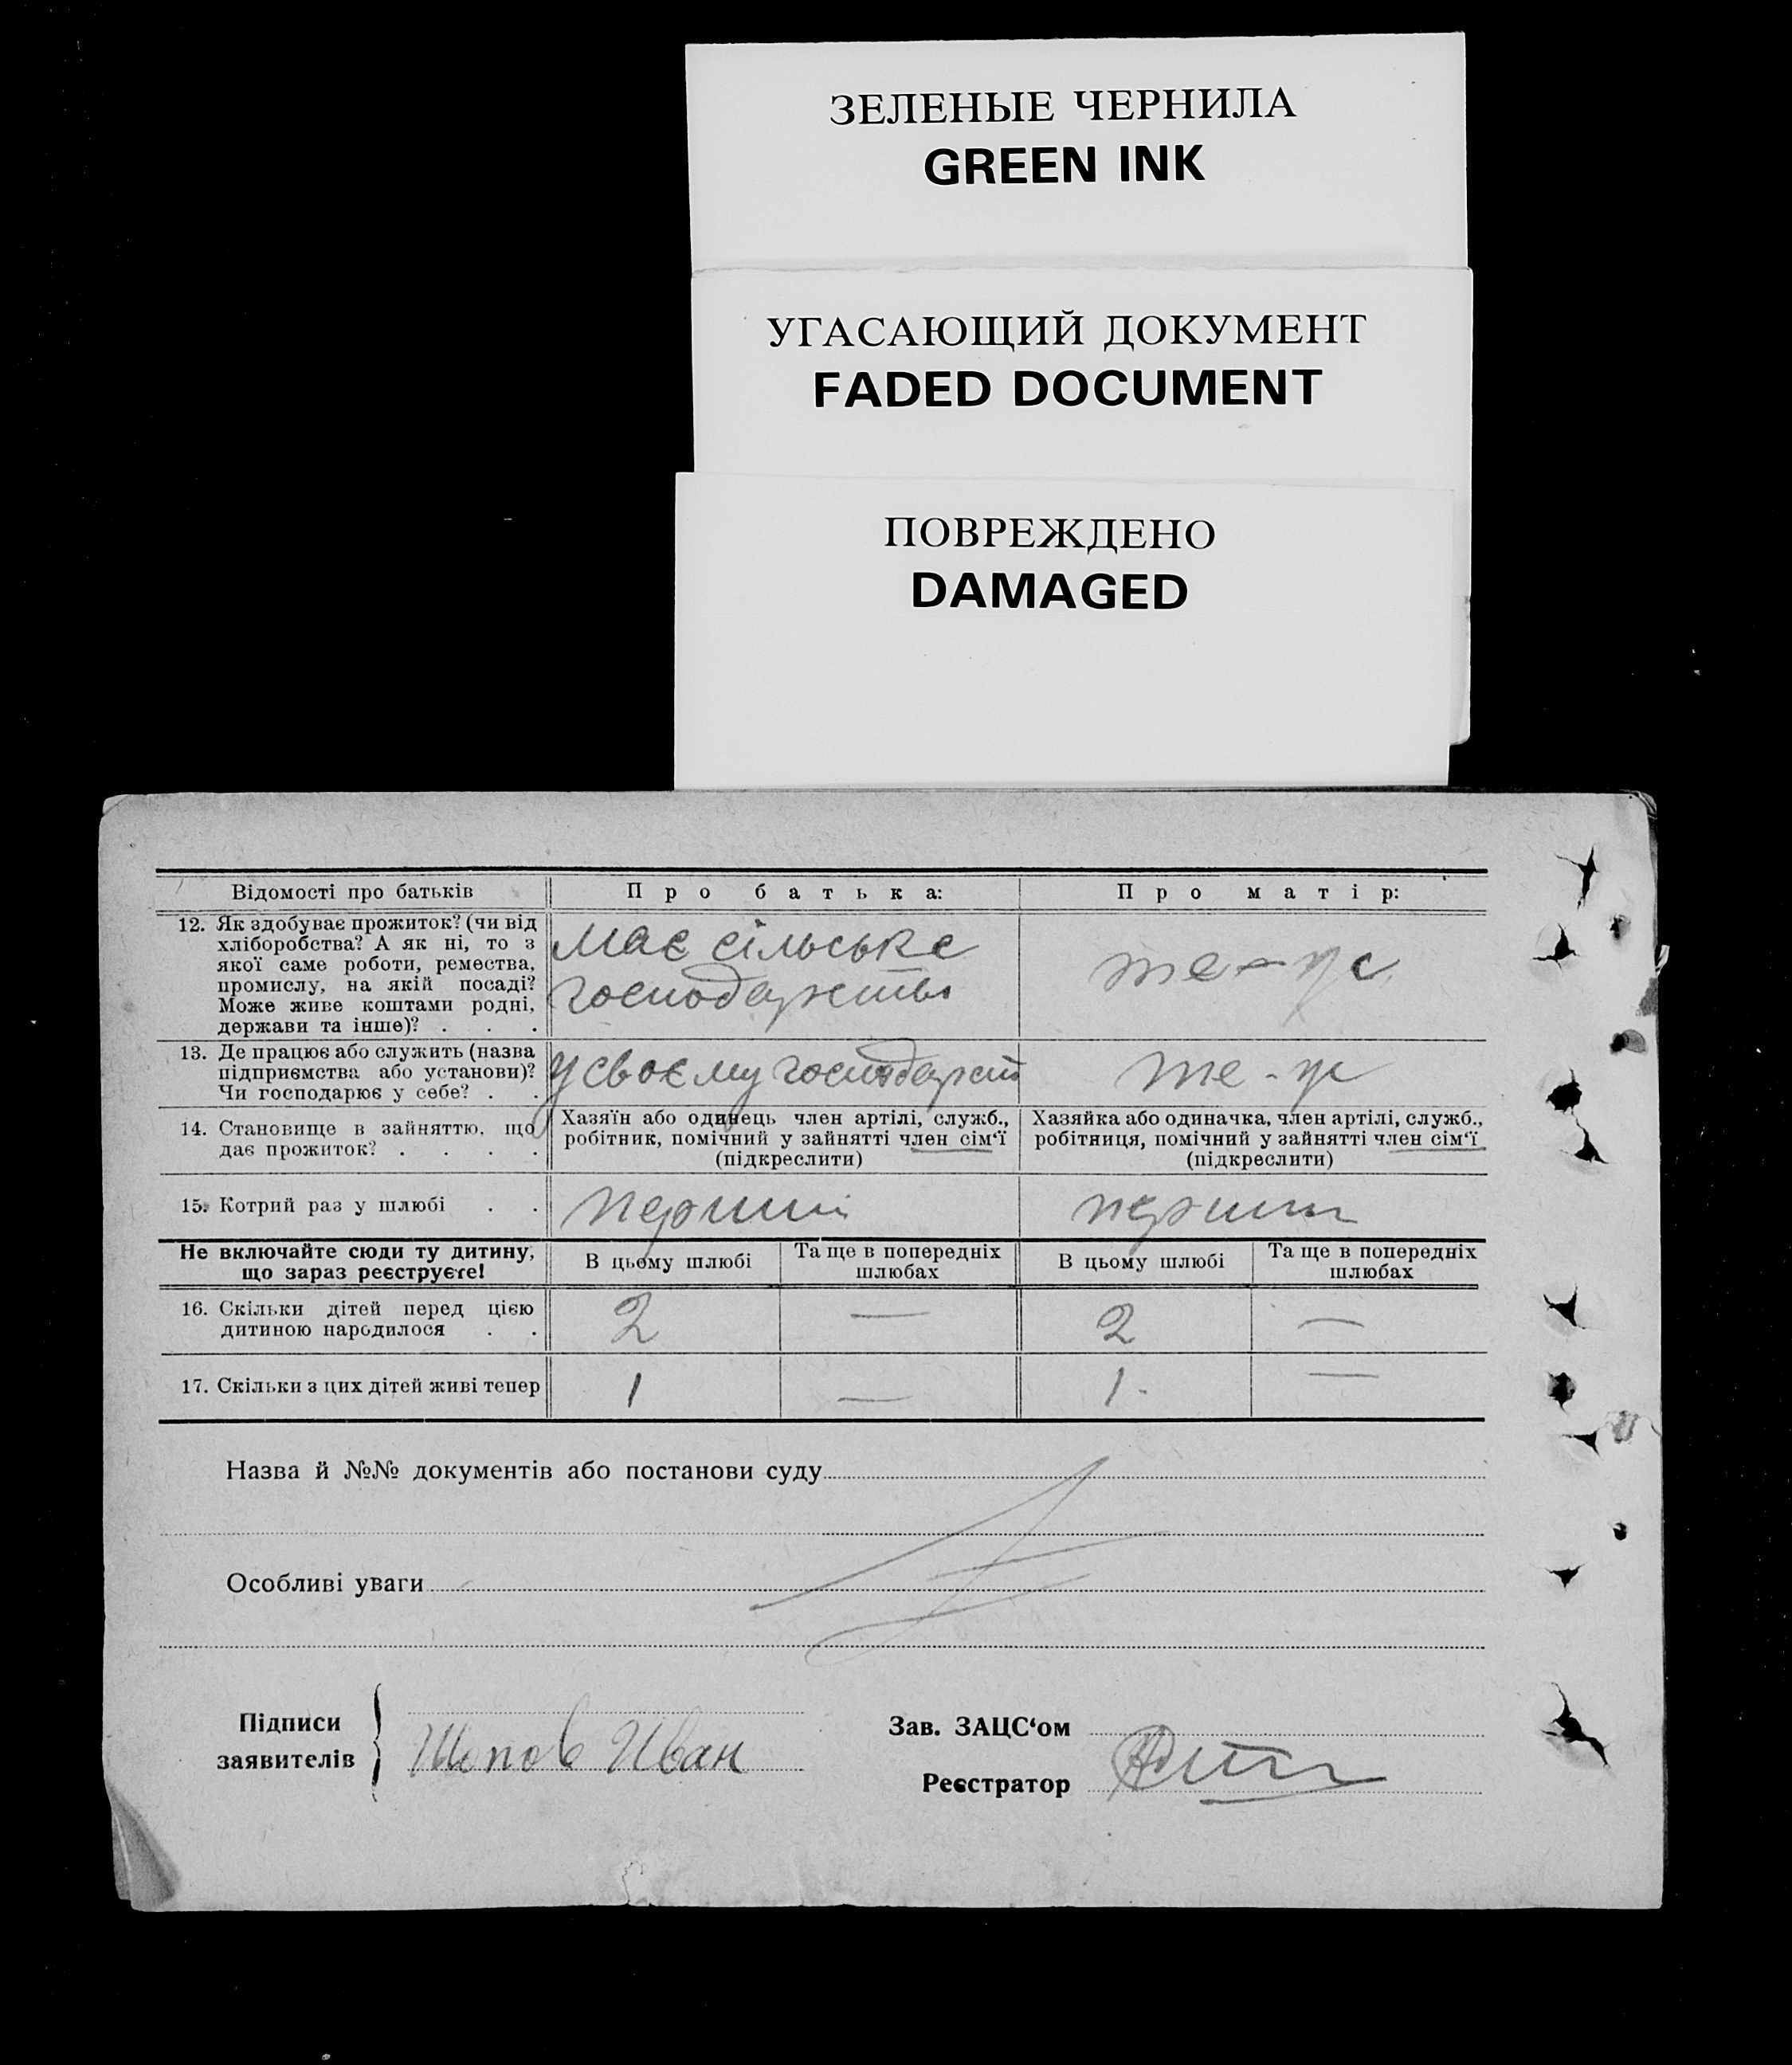 ЗЕЛЕНЫЕ ЧЕРНИЛА
GREEN INK
УГАСАЮЩИЙ ДОКУМЕНТ
FADED DOCUMENT
ПОВРЕЖДЕНО
DAMAGED
Відомості про батьків Про батька: Про матір:
12. Як здобуває прожиток? (чи від
хліборобства? А як ні, то з
якої саме роботи, ремества,
промислу, на якій посаді?
Може живе коштами родні,
держави та інше)? . . .
має сільське
господарство
те-ж
13. Де працює або служить (назва
підприємства або установи)?
Чи господарює у себе? . .
у своєму господарст
те-ж
14. Становище в зайняттю, що
дає прожиток? . . . .
Хазяїн або одинець член артілі, служб.,
робітник, помічний у зайнятті член сім'ї
(підкреслити)
Хазяйка або одиначка, член артілі, служб.,
робітниця, помічний у зайнятті член сім'ї
(підкреслити)
15. Котрий раз у шлюбі . . перший перший
Не включайте сюди ту дитину,
що зараз реєструєте!
В цьому шлюбі
Та ще в попередніх
шлюбах
В цьому шлюбі
Та ще в попередніх
шлюбах
16. Скільки дітей перед цією
дитиною народилося . .
2 — 2 —
17. Скільки з цих дітей живі тепер 1 — 1. —
Назва й №№ документів або постанови суду
Особливі уваги
Підписи
заявителів
Шопов Иван
Зав. ЗАЦС'ом
Реєстратор